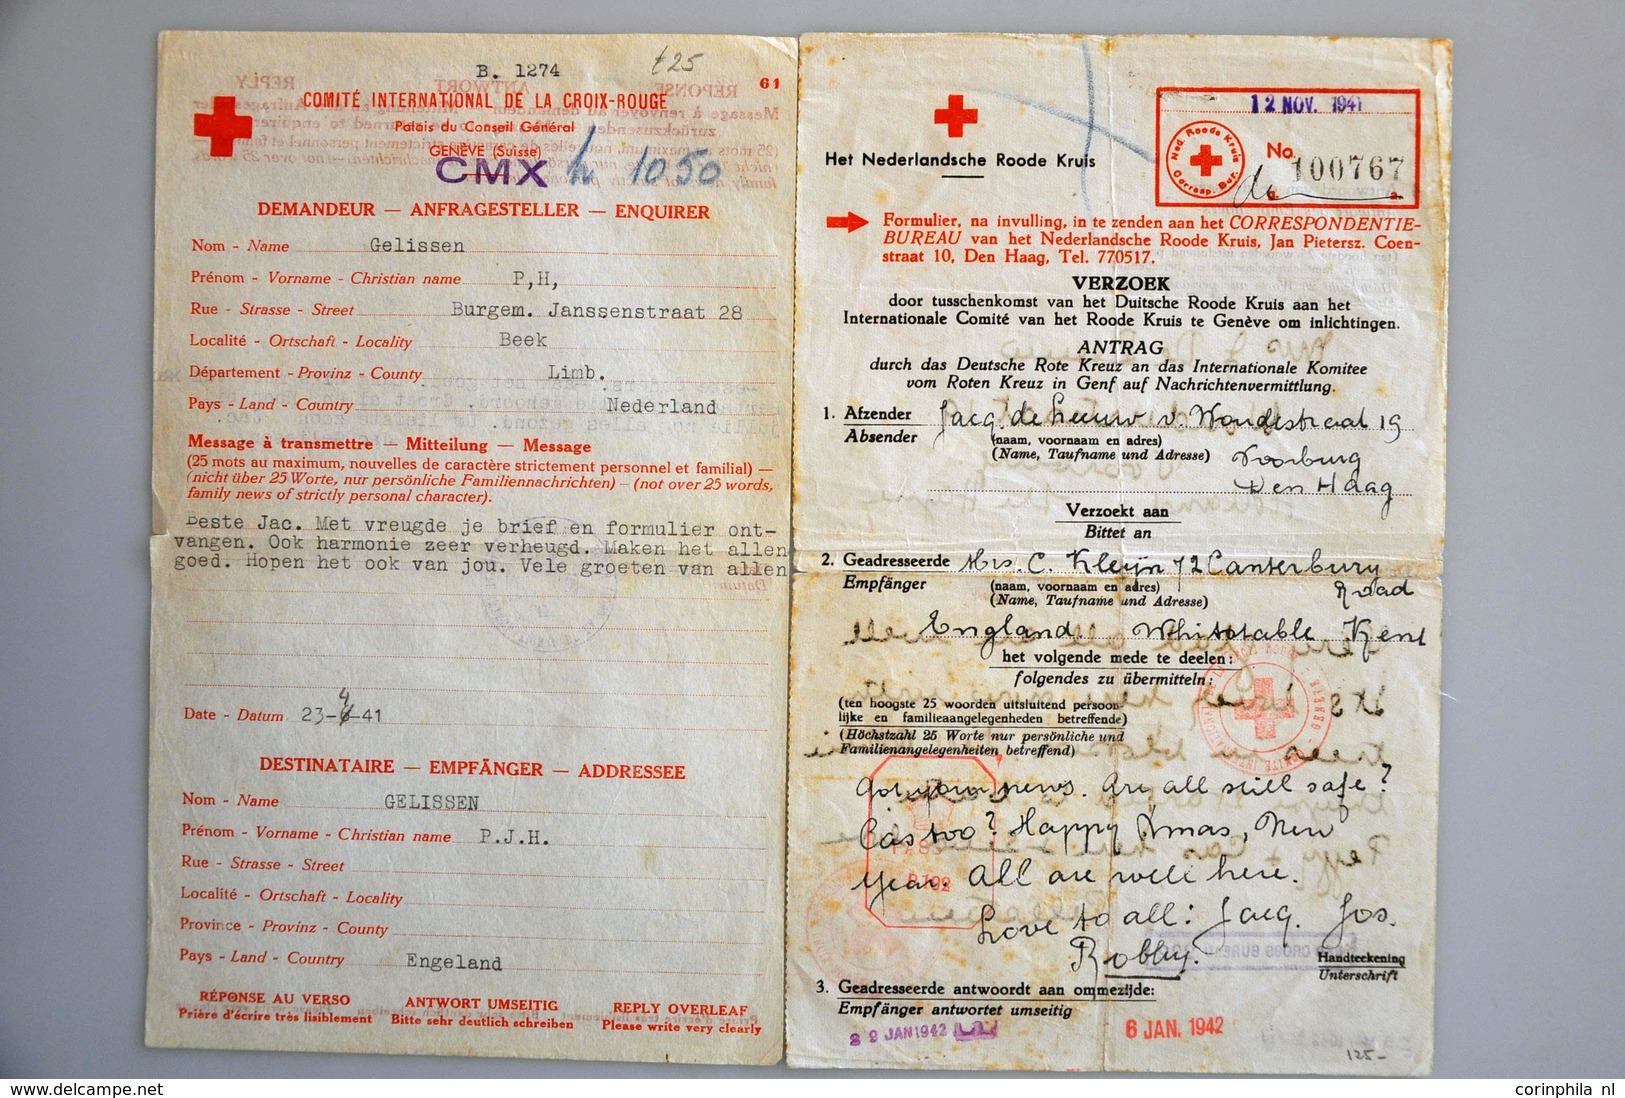 B. 1274
t25
61
COMITÉ INTERNATIONAL DE LA CROIX-ROUGE
Palais du Conseil Général
GENÈVE (Suisse)
CMX
1050
DEMANDEUR — ANFRAGESTELLER — ENQUIRER
Nom - Name Gelissen
Prénom - Vorname - Christian name P,H,
Rue - Strasse - Street Burgem. Janssenstraat 28
Localité - Ortschaft - Locality Beek
Département - Provinz - County Limb.
Pays - Land - Country Nederland
Message à transmettre — Mitteilung — Message
(25 mots au maximum, nouvelles de caractère strictement personnel et familial) —
(nicht über 25 Worte, nur persönliche Familiennachrichten) — (not over 25 words,
family news of strictly personal character).
Beste Jac. Met vreugde je brief en formulier ont-
vangen. Ook harmonie zeer verheugd. Maken het allen
goed. Hopen het ook van jou. Vele groeten van allen
Date - Datum 23-4-41
DESTINATAIRE — EMPFÄNGER — ADDRESSEE
Nom - Name GELISSEN
Prénom - Vorname - Christian name P.J.H.
Rue - Strasse - Street
Localité - Ortschaft - Locality
Province - Provinz - County
Pays - Land - Country Engeland
RÉPONSE AU VERSO ANTWORT UMSEITIG REPLY OVERLEAF
Prière d'écrire très lisiblement Bitte sehr deutlich schreiben Please write very clearly
12 NOV. 1941
Ned. Roode Kruis
Corresp. Bur.
No. 100767
Het Nederlandsche Roode Kruis
Formulier, na invulling, in te zenden aan het CORRESPONDENTIE-
BUREAU van het Nederlandsche Roode Kruis, Jan Pietersz. Coen-
straat 10, Den Haag, Tel. 770517.
VERZOEK
door tusschenkomst van het Duitsche Roode Kruis aan het
Internationale Comité van het Roode Kruis te Genève om inlichtingen.
ANTRAG
durch das Deutsche Rote Kreuz an das Internationale Komitee
vom Roten Kreuz in Genf auf Nachrichtenvermittlung.
1. Afzender Jacq. de Leeuw v. Woudestraat 19
Absender (naam, voornaam en adres)
(Name, Taufname und Adresse) Voorburg
Den Haag
Verzoekt aan
Bittet an
2. Geadresseerde Mrs. C. Kleijn 72 Canterbury
Empfänger (naam, voornaam en adres) Road
(Name, Taufname und Adresse)
England. Whitstable Kent
het volgende mede te deelen:
folgendes zu übermitteln:
(ten hoogste 25 woorden uitsluitend persoon-
lijke en familieaangelegenheden betreffende)
(Höchstzahl 25 Worte nur persönliche und
Familienangelegenheiten betreffend)
Got your news. Are all still safe?
Cas too? Happy Xmas, New
year. All are well here.
Love to all: Jacq. Jos.
Robby.
Handteekening
Unterschrift
3. Geadresseerde antwoordt aan ommezijde:
Empfänger antwortet umseitig
29 JAN 1942
6 JAN. 1942
125-
corinphila nl